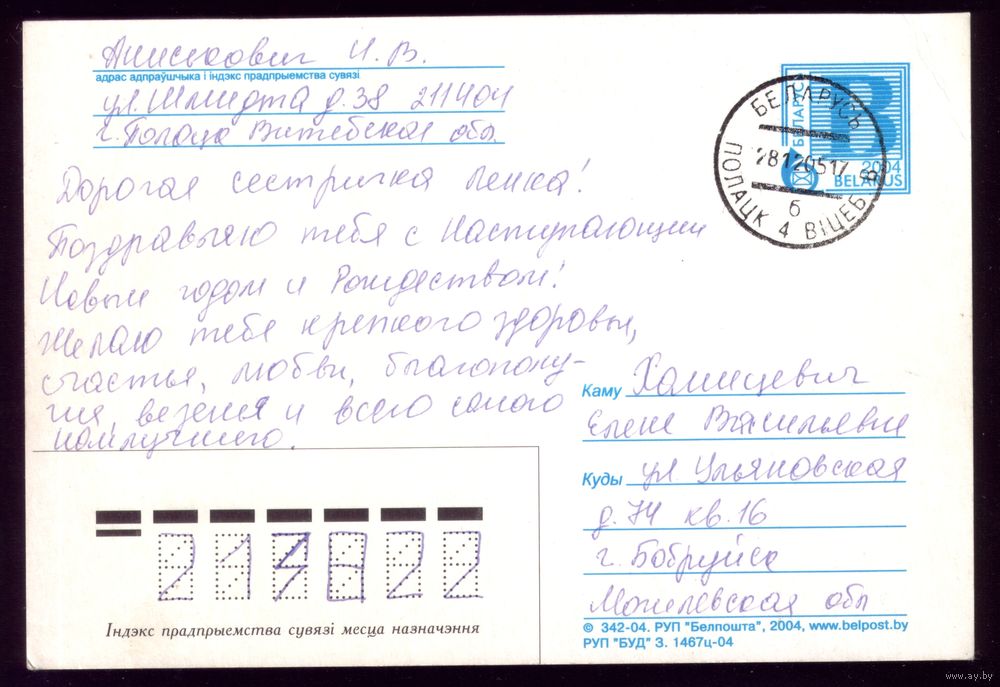 Аниськович И. В.
адрас адпраўшчыка і індэкс прадпрыемства сувязі
ул. Шмидта д. 38 211404
г. Полоцк Витебская обл.
Дорогая сестричка Ленка!
Поздравляю тебя с Наступающим
Новым годом и Рождеством!
Желаю тебе крепкого здоровья,
счастья, любви, благополу-
чия, везения и всего самого
наилучшего.
БЕЛАРУСЬ
2004
BELARUS
БЕЛАРУСЬ
28120517
б
ПОЛАЦК 4 ВІЦЕБ
Каму Хамицевич
Елене Васильевне
Куды ул. Ульяновская
д. 74 кв. 16
г. Бобруйск
Могилевская обл
© 342-04. РУП "Белпошта", 2004, www.belpost.by
РУП "БУД" З. 1467ц-04
Індэкс прадпрыемства сувязі месца назначэння
www.ay.by